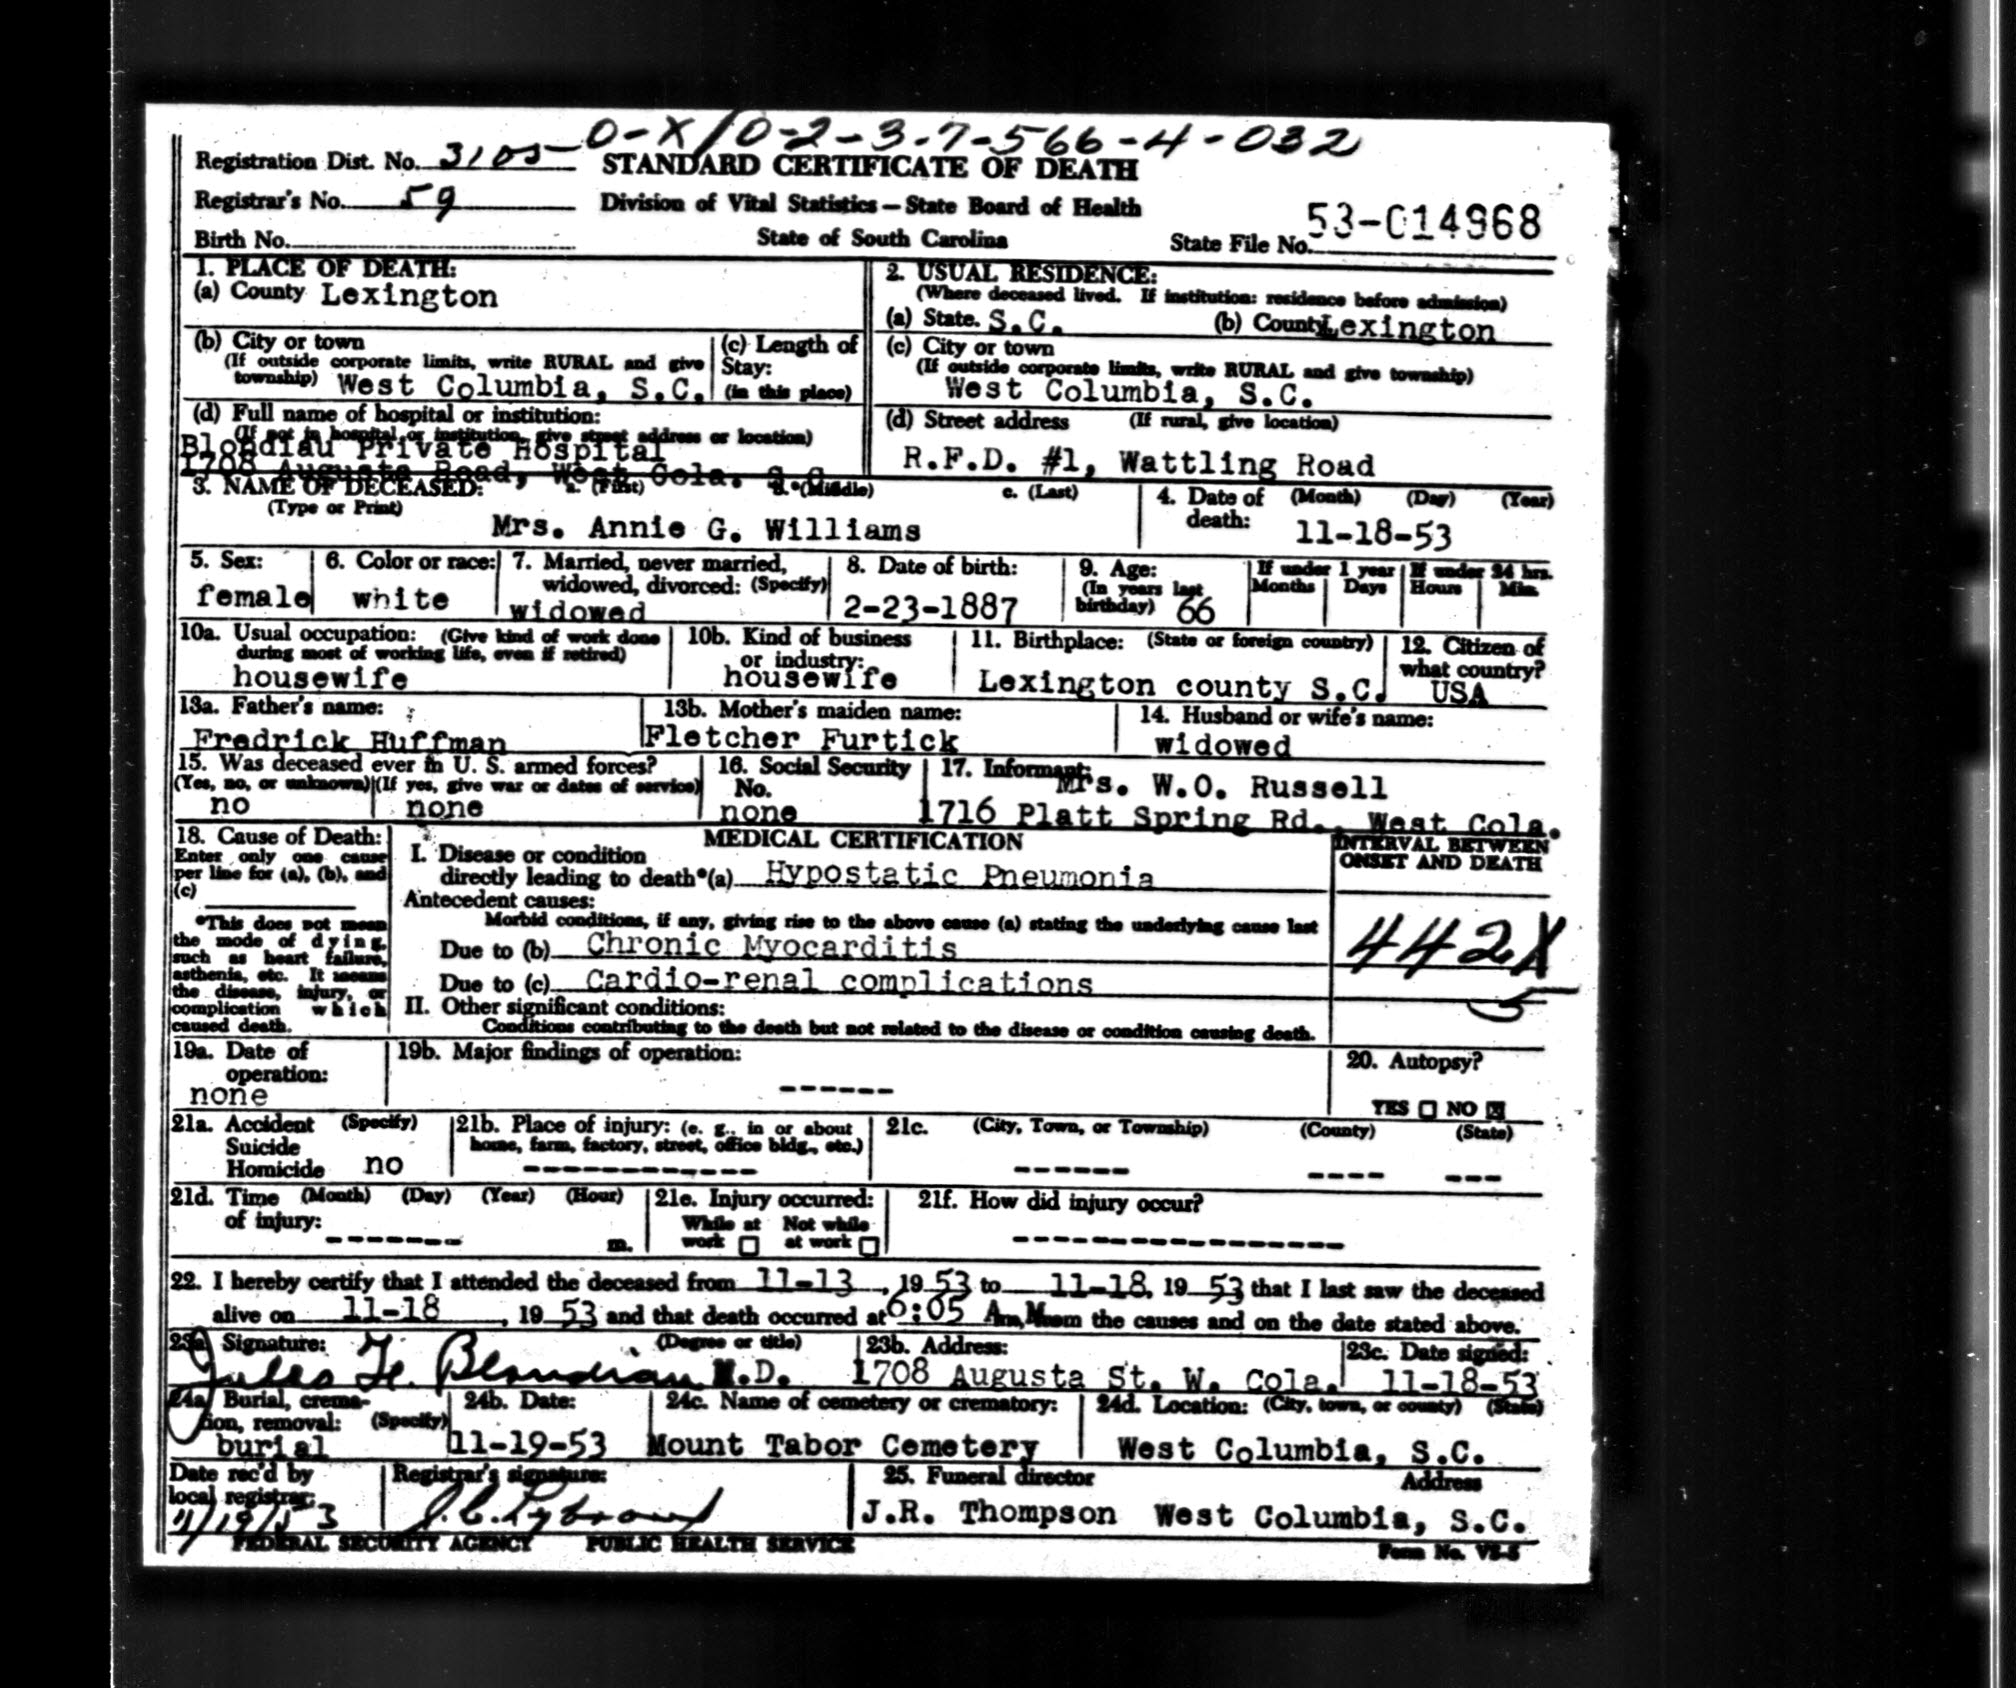 O-X/0-2-3-7-566-4-032
Registration Dist. No. 3105 STANDARD CERTIFICATE OF DEATH
Registrar's No. 59 Division of Vital Statistics—State Board of Health
Birth No. State of South Carolina State File No. 53-014968
1. PLACE OF DEATH:
(a) County Lexington
2. USUAL RESIDENCE:
(Where deceased lived. If institution: residence before admission)
(a) State. S.C. (b) County Lexington
(b) City or town
(If outside corporate limits, write RURAL and give
township) West Columbia, S.C.
(c) Length of
Stay:
(in this place)
(c) City or town
(If outside corporate limits, write RURAL and give township)
West Columbia, S.C.
(d) Full name of hospital or institution:
(If not in hospital or institution, give street address or location)
Blondiau Private Hospital
1708 Augusta Road, West Cola. S.C.
(d) Street address (If rural, give location)
R.F.D. #1, Wattling Road
3. NAME OF DECEASED: a. (First) b. (Middle) c. (Last)
(Type or Print)
Mrs. Annie G. Williams
4. Date of (Month) (Day) (Year)
death:
11-18-53
5. Sex:
female
6. Color or race:
white
7. Married, never married,
widowed, divorced: (Specify)
widowed
8. Date of birth:
2-23-1887
9. Age:
(In years last
birthday) 66
If under 1 year
Months Days
If under 24 hrs.
Hours Min.
10a. Usual occupation: (Give kind of work done
during most of working life, even if retired)
housewife
10b. Kind of business
or industry:
housewife
11. Birthplace: (State or foreign country)
Lexington county S.C.
12. Citizen of
what country?
USA
13a. Father's name:
Fredrick Huffman
13b. Mother's maiden name:
Fletcher Furtick
14. Husband or wife's name:
widowed
15. Was deceased ever in U. S. armed forces?
(Yes, no, or unknown) (If yes, give war or dates of service)
no none
16. Social Security
No.
none
17. Informant:
Mrs. W.O. Russell
1716 Platt Spring Rd., West Cola.
18. Cause of Death:
Enter only one cause
per line for (a), (b), and
(c)
*This does not mean
the mode of dying,
such as heart failure,
asthenia, etc. It means
the disease, injury, or
complication which
caused death.
MEDICAL CERTIFICATION
I. Disease or condition
directly leading to death*(a) Hypostatic Pneumonia
Antecedent causes:
Morbid conditions, if any, giving rise to the above cause (a) stating the underlying cause last
Due to (b) Chronic Myocarditis
Due to (c) Cardio-renal complications
II. Other significant conditions:
Conditions contributing to the death but not related to the disease or condition causing death.
INTERVAL BETWEEN
ONSET AND DEATH
442X
19a. Date of
operation:
none
19b. Major findings of operation:
------
20. Autopsy?
YES ☐ NO ☒
21a. Accident (Specify)
Suicide
Homicide no
21b. Place of injury: (e. g., in or about
home, farm, factory, street, office bldg., etc.)
------------
21c. (City, Town, or Township) (County) (State)
------ ---- ---
21d. Time (Month) (Day) (Year) (Hour)
of injury:
------- m.
21e. Injury occurred:
While at Not while
work ☐ at work ☐
21f. How did injury occur?
-----------------
22. I hereby certify that I attended the deceased from 11-13, 19 53 to 11-18, 19 53 that I last saw the deceased
alive on 11-18, 19 53 and that death occurred at 6:05 A.M. from the causes and on the date stated above.
23a. Signature: (Degree or title)
Jules H. Blondiau M.D.
23b. Address:
1708 Augusta St. W. Cola.
23c. Date signed:
11-18-53
24a. Burial, crema-
tion, removal: (Specify)
burial
24b. Date:
11-19-53
24c. Name of cemetery or crematory:
Mount Tabor Cemetery
24d. Location: (City, town, or county) (State)
West Columbia, S.C.
Date rec'd by
local registrar:
11/19/53
Registrar's signature:
25. Funeral director Address
J.R. Thompson West Columbia, S.C.
FEDERAL SECURITY AGENCY PUBLIC HEALTH SERVICE
Form No. VS-5